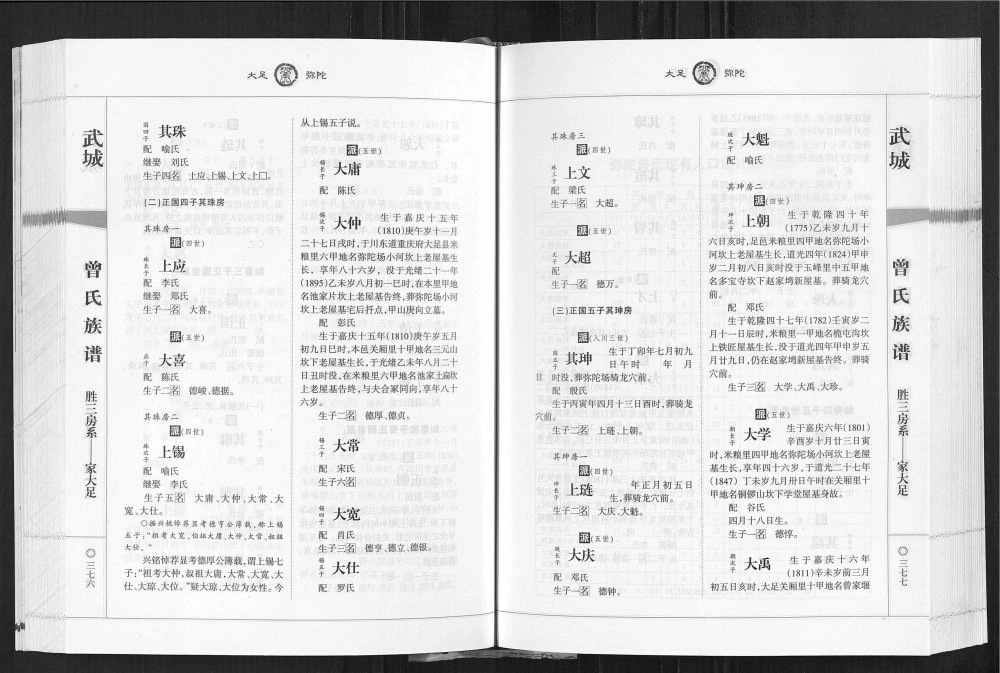 大足 弥陀
武城
曾氏族谱
胜三房系——家大足
〇三七六
国四子 其珠
配 喻氏
继娶 刘氏
生子四名 上应、上锡、上文、上囗。
(二)正国四子其珠房
其珠房一
派(四世)
珠长子 上应
配 李氏
继娶 邓氏
生子一名 大喜。
派(五世)
应子 大喜
配 陈氏
生子二名 德峻、德据。
其珠房二
派(四世)
珠次子 上锡
配 喻氏
继娶 李氏
生子五名 大庸、大仲、大常、大
宽、大仕。
〇振兴桃悼荐显考德亨公薄载,称上锡
五子:“祖考大宽,伯祖大庸、大仲、大常,叔祖
大仕。”
兴铭悼荐显考德厚公薄载,谓上锡七
子:“祖考大仲,叔祖大庸,大常、大宽、大
仕、大琼、大位。”疑大琼、大位为女性。今
从上锡五子说。
派(五世)
锡长子 大庸
配 陈氏
锡次子 大仲 生于嘉庆十五年
(1810)庚午岁十一月
二十七日戌时,于川东道重庆府大足县米
粮里六甲地名弥陀场小河坎上老屋基生
长，享年八十六岁，没于光绪二十一年
(1895)乙未岁八月初一巳时,在本里甲地
名池家片坎上老屋基告终,葬弥陀场小河
坎上老屋基宅后扦点,甲山庚向立墓。
配 彭氏
生于嘉庆十五年(1810)庚午岁五月
初九日巳时,本邑关厢里十甲地名三元山
坎下老屋基生长,于光绪乙未年八月二十
日丑时没,在米粮里六甲地名池家上扁坎
上老屋基告终,与夫合冢同向,享年八十
六岁。
生子二名 德厚、德贞。
锡三子 大常
配 宋氏
生子六名
锡四子 大宽
配 肖氏
生子三名 德亨、德立、德银。
锡五子 大仕
配 罗氏
大足 弥陀
其珠房三
派(四世)
珠三子 上文
配 梁氏
生子一名 大超。
派(五世)
文子 大超
配 邓氏
生子一名 德万。
(三)正国五子其珅房
派(入川三世)
国五子 其珅 生于丁卯年七月初九
日午时 年 月
日 时没,葬弥陀场骑龙穴前。
配 殷氏
生于丙寅年四月十三日酉时,葬骑龙
穴前。
生子二名 上琏、上朝。
其珅房一
派(四世)
珅长子 上琏 年正月初五日
生,葬骑龙穴前。
生子二名 大庆、大魁。
派(五世)
琏长子 大庆
配 邓氏
生子一名 德钟。
琏次子 大魁
配 喻氏
其珅房二
派(四世)
珅次子 上朝 生于乾隆四十年
(1775)乙未岁九月十
六日亥时,足邑米粮里四甲地名弥陀场小
河坎上老屋基生长,道光四年(1824)甲申
岁二月初八日亥时没于玉峰里中五甲地
名多宝寺坎下赵家塆新屋基。葬骑龙穴
前。
配 邓氏
生于乾隆四十七年(1782)壬寅岁二
月十一日辰时,米粮里一甲地名桅屯沟坎
上铁匠屋基生长,没于道光四年甲申岁五
月廿九日,仍在赵家塆新屋基告终。葬骑
穴前。
生子三名 大学、大禹、大珍。
派(五世)
朝长子 大学 生于嘉庆六年(1801)
辛酉岁十月廿三日寅
时,米粮里四甲地名弥陀场小河坎上老屋
基生长,享年四十六岁,于道光二十七年
(1847)丁未岁九月卅日午时在关厢里十
甲地名铜锣山坎下学堂屋基身故。
配 谷氏
四月十八日生。
生子一名 德惇。
朝次子 大禹 生于嘉庆十六年
(1811)辛未岁前三月
初五日亥时,大足关厢里十甲地名曾家堰
武城
曾氏族谱
胜三房系——家大足
〇三七七